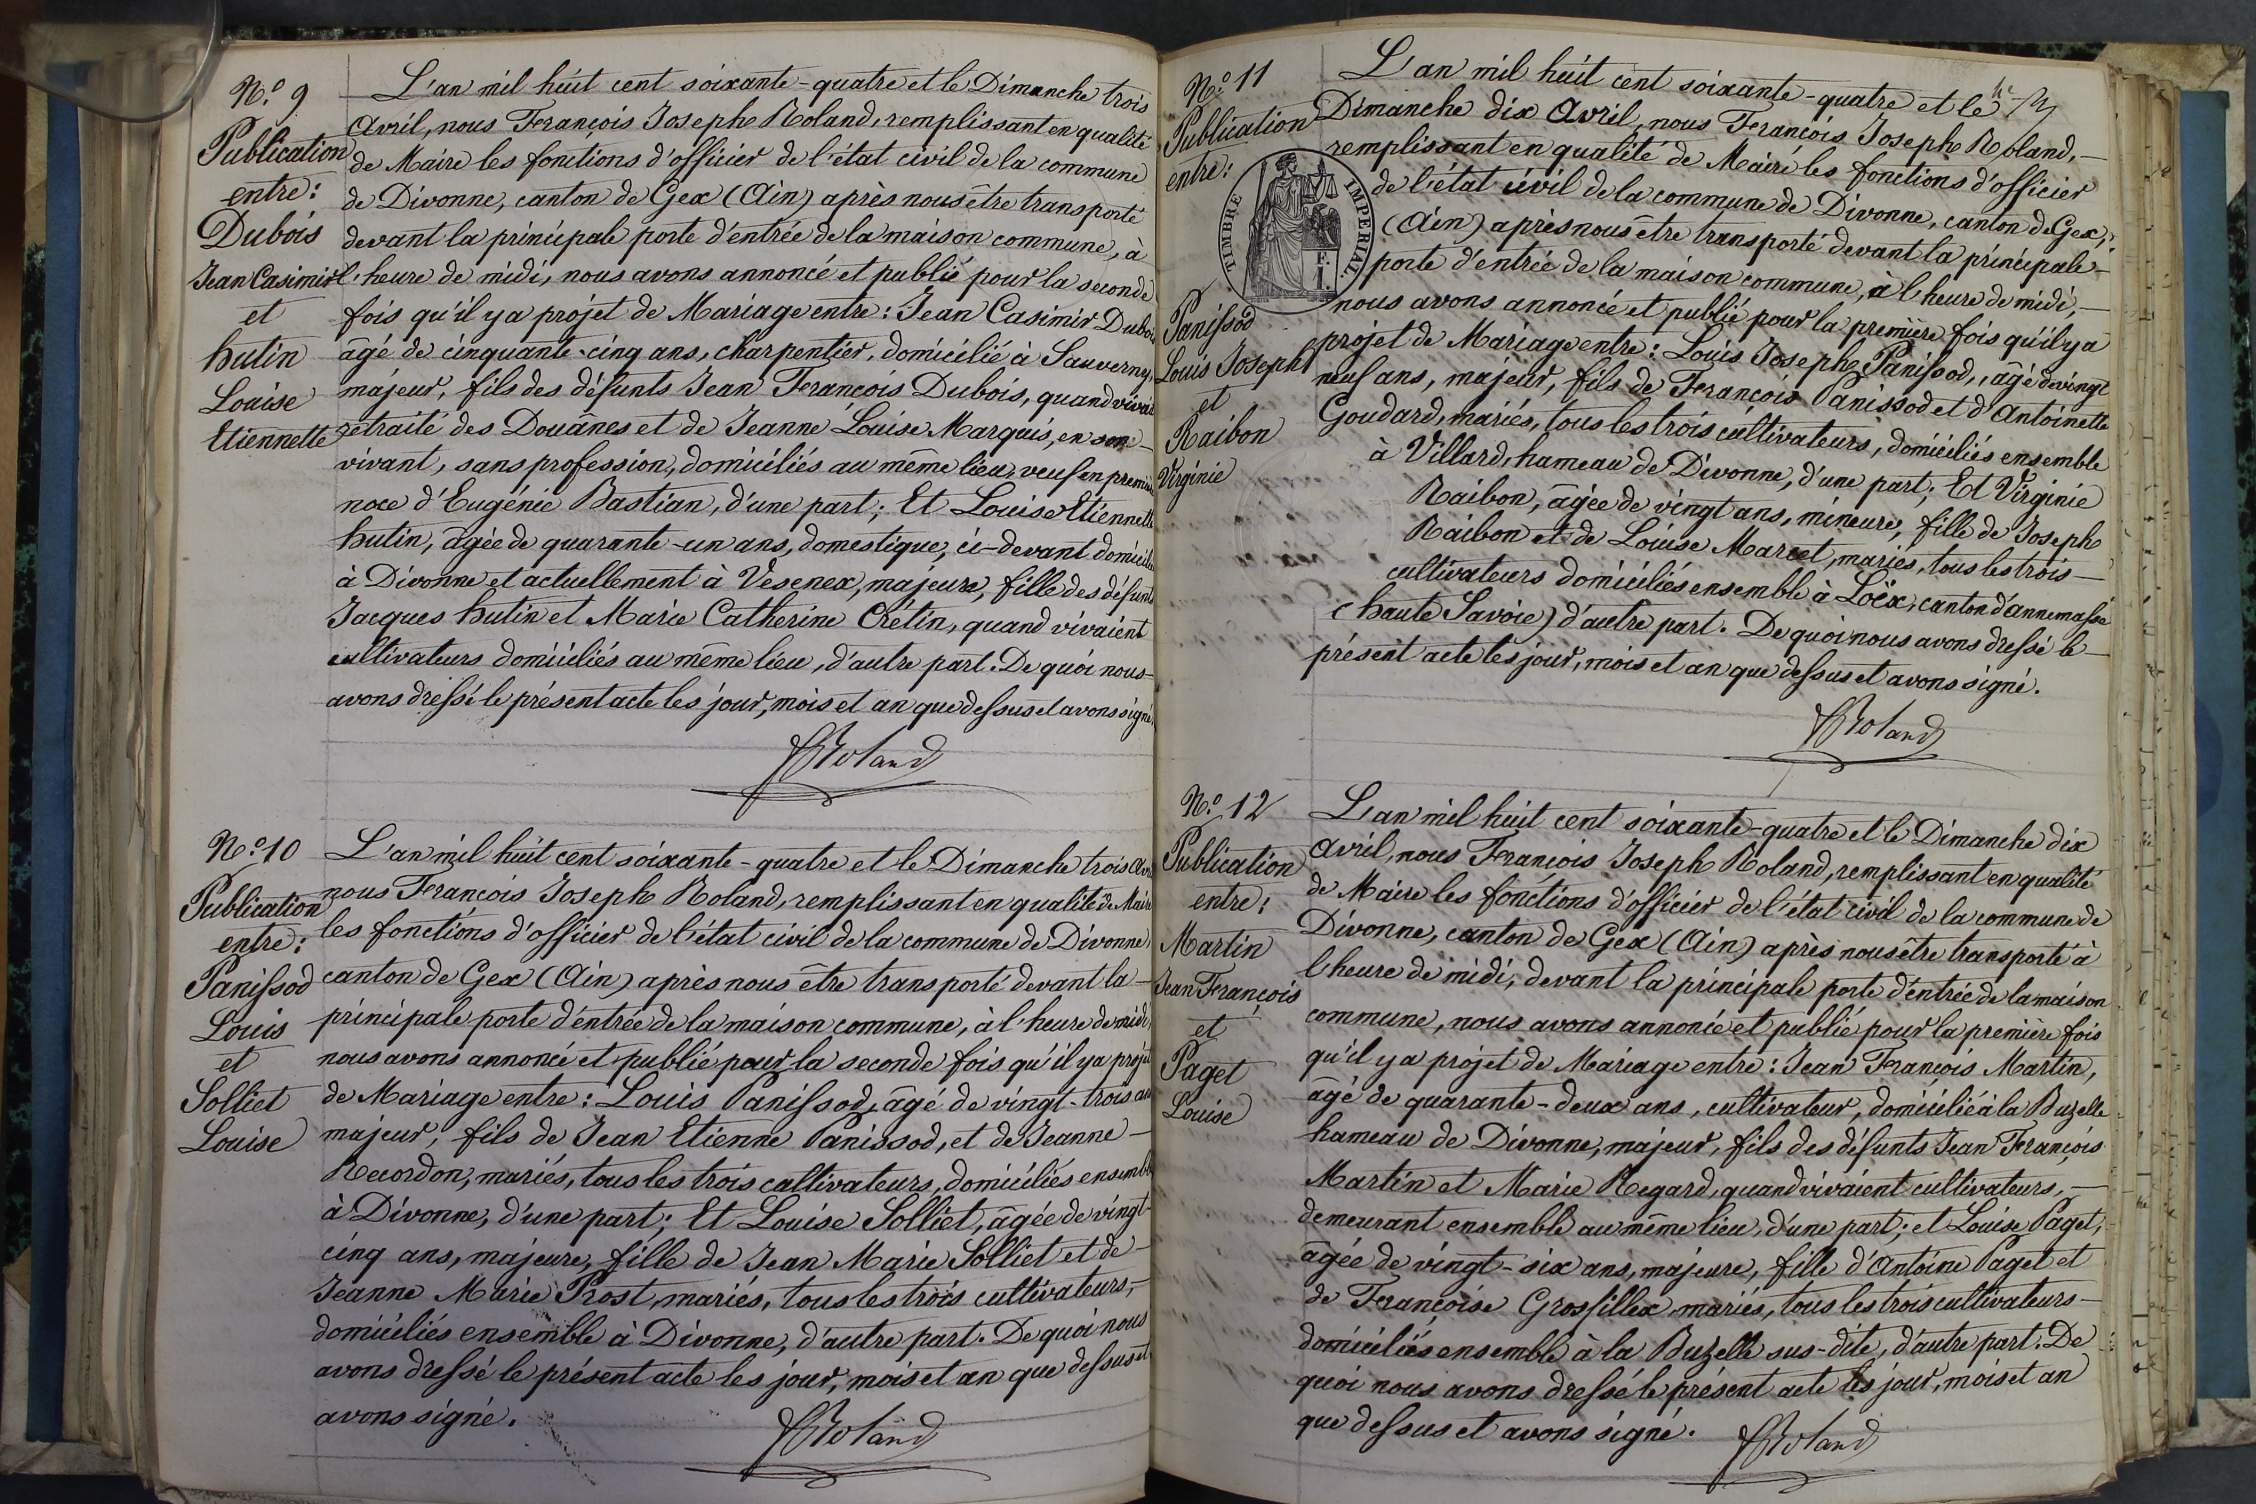 N.º 9
Publication
entre:
Dubois
Jean Casimir
et
hutin
Louise
Etiennette
L'an mil huit cent soixante-quatre et le Dimanche trois
Avril, nous François Joseph Roland, remplissant en qualité
de Maire les fonctions d'officier de l'état civil de la commune
de Divonne, canton de Gex (Ain) après nous être transporté
devant la principale porte d'entrée de la maison commune, à
l'heure de midi, nous avons annoncé et publié pour la seconde
fois qu'il y a projet de Mariage entre: Jean Casimir Dubois
âgé de cinquante-cinq ans, charpentier, domicilié à Sauverny,
majeur, fils des défunts Jean François Dubois, quand vivait
retraité des Douânes et de Jeanne Louise Marquis, en son
vivant, sans profession, domiciliés au même lieu, veuf en premiè
noce d'Eugénie Bastian, d'une part; Et Louise Etiennette
hutin, âgée de quarante-un ans, domestique, ci-devant domicili
à Divonne et actuellement à Vesenex, majeure, fille des défunts
Jacques hutin et Marie Catherine Crétin, quand vivaient
cultivateurs domiciliés au même lieu, d'autre part. De quoi nous
avons dressé le présent acte les jour, mois et an que dessus et avons signé.
FRoland
N.º 10
Publication
entre:
Panissod
Louis
et
Solliet
Louise
L'an mil huit cent soixante-quatre et le Dimanche trois Avr
nous François Joseph Roland, remplissant en qualité de Maire
les fonctions d'officier de l'état civil de la commune de Divonne
canton de Gex (Ain) après nous être transporté devant la
principale porte d'entrée de la maison commune, à l'heure de midi,
nous avons annoncé et publié pour la seconde fois qu'il y a projet
de Mariage entre: Louis Panissod, âgé de vingt-trois ans
majeur, fils de Jean Etienne Panissod, et de Jeanne
Recordon, mariés, tous les trois cultivateurs, domiciliés ensemble
à Divonne, d'une part; Et Louise Solliet, âgée de vingt-
cinq ans, majeure, fille de Jean Marie Solliet et de
Jeanne Marie Prost, mariés, tous les trois cultivateurs,
domiciliés ensemble à Divonne, d'autre part. De quoi nous
avons dressé le présent acte les jour, mois et an que dessus et
avons signé.
FRoland
N.º 11
Publication
entre:
TIMBRE IMPERIAL
Panissod
Louis Joseph
et
Raibon
Virginie
L'an mil huit cent soixante-quatre et le
Dimanche dix Avril, nous François Joseph Roland,
remplissant en qualité de Maire les fonctions d'officier
de l'état civil de la commune de Divonne, canton de Gex,
(Ain) après nous être transporté devant la principale
porte d'entrée de la maison commune, à l'heure de midi,
nous avons annoncé et publié pour la première fois qu'il y a
projet de Mariage entre: Louis Joseph Panissod, âgé de vingt
neuf ans, majeur, fils de François Panissod et d'Antoinette
Goudard, mariés, tous les trois cultivateurs, domiciliés ensemble
à Villard, hameau de Divonne, d'une part; Et Virginie
Raibon, âgée de vingt ans, mineure, fille de Joseph
Raibon et de Louise Marcet, mariés, tous les trois
cultivateurs domiciliés ensemble à Loëx, canton d'annemasse
(haute Savoie) d'autre part. De quoi nous avons dressé le
présent acte les jour, mois et an que dessus et avons signé.
FRoland
N.º 12
Publication
entre:
Martin
Jean François
et
Paget
Louise
L'an mil huit cent soixante-quatre et le Dimanche dix
Avril, nous François Joseph Roland, remplissant en qualité
de Maire les fonctions d'officier de l'état civil de la commune de
Divonne, canton de Gex (Ain) après nous être transporté à
l'heure de midi, devant la principale porte d'entrée de la maison
commune, nous avons annoncé et publié pour la première fois
qu'il y a projet de Mariage entre: Jean François Martin,
âgé de quarante-deux ans, cultivateur, domicilié à la Buzelle
hameau de Divonne, majeur, fils des défunts Jean François
Martin et Marie Regard, quand vivaient cultivateurs,
demeurant ensemble au même lieu, d'une part; et Louise Paget,
âgée de vingt-six ans, majeure, fille d'Antoine Paget et
de Françoise Grosfillex, mariés, tous les trois cultivateurs
domiciliés ensemble à la Buzelle sus-dite, d'autre part. De
quoi nous avons dressé le présent acte les jour, mois et an
que dessus et avons signé.
FRoland